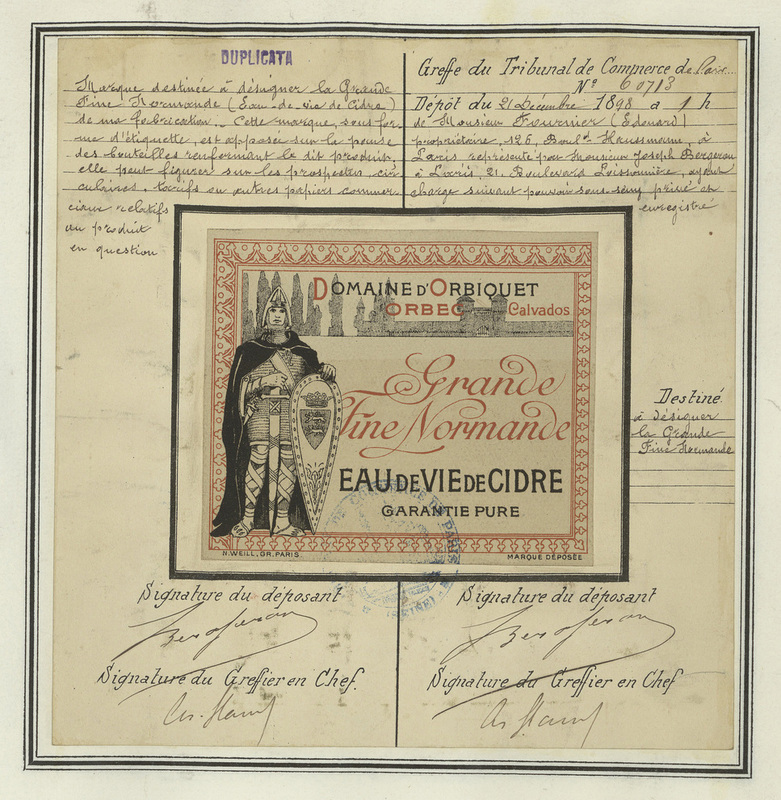 DUPLICATA
Marque destinée à désigner la Grande
Fine Normande (Eau-de-vie de Cidre)
de ma fabrication. Cette marque, sous for
me d'étiquette, est apposée sur la panse
des bouteilles renfermant le dit produit,
elle peut figurer sur les prospectus, cir
culaires, tarifs ou autres papiers commer
ciaux relatifs
au produit
en question
Greffe du Tribunal de Commerce de Paris
N° 60713
Dépôt du 21 Décembre 1898 à 1 h
de Monsieur Fournier (Edouard)
propriétaire, 126, Boul.d Haussmann, à
Paris représenté par Monsieur Joseph Bergeron
à Paris, 21, Boulevard Poissonnière, ayant
charge suivant pouvoir sous-seing privé et
enregistré
DOMAINE D'ORBIQUET
ORBEC Calvados
Grande
Fine Normande
EAU DE VIE DE CIDRE
GARANTIE PURE
N. WEILL, GR. PARIS
MARQUE DÉPOSÉE
Destiné
à désigner
la Grande
Fine Normande
COMMERCE DE PARIS
(SEINE)
Signature du déposant
Bergeron
Signature du Greffier en Chef.
Signature du déposant
Bergeron
Signature du Greffier en Chef